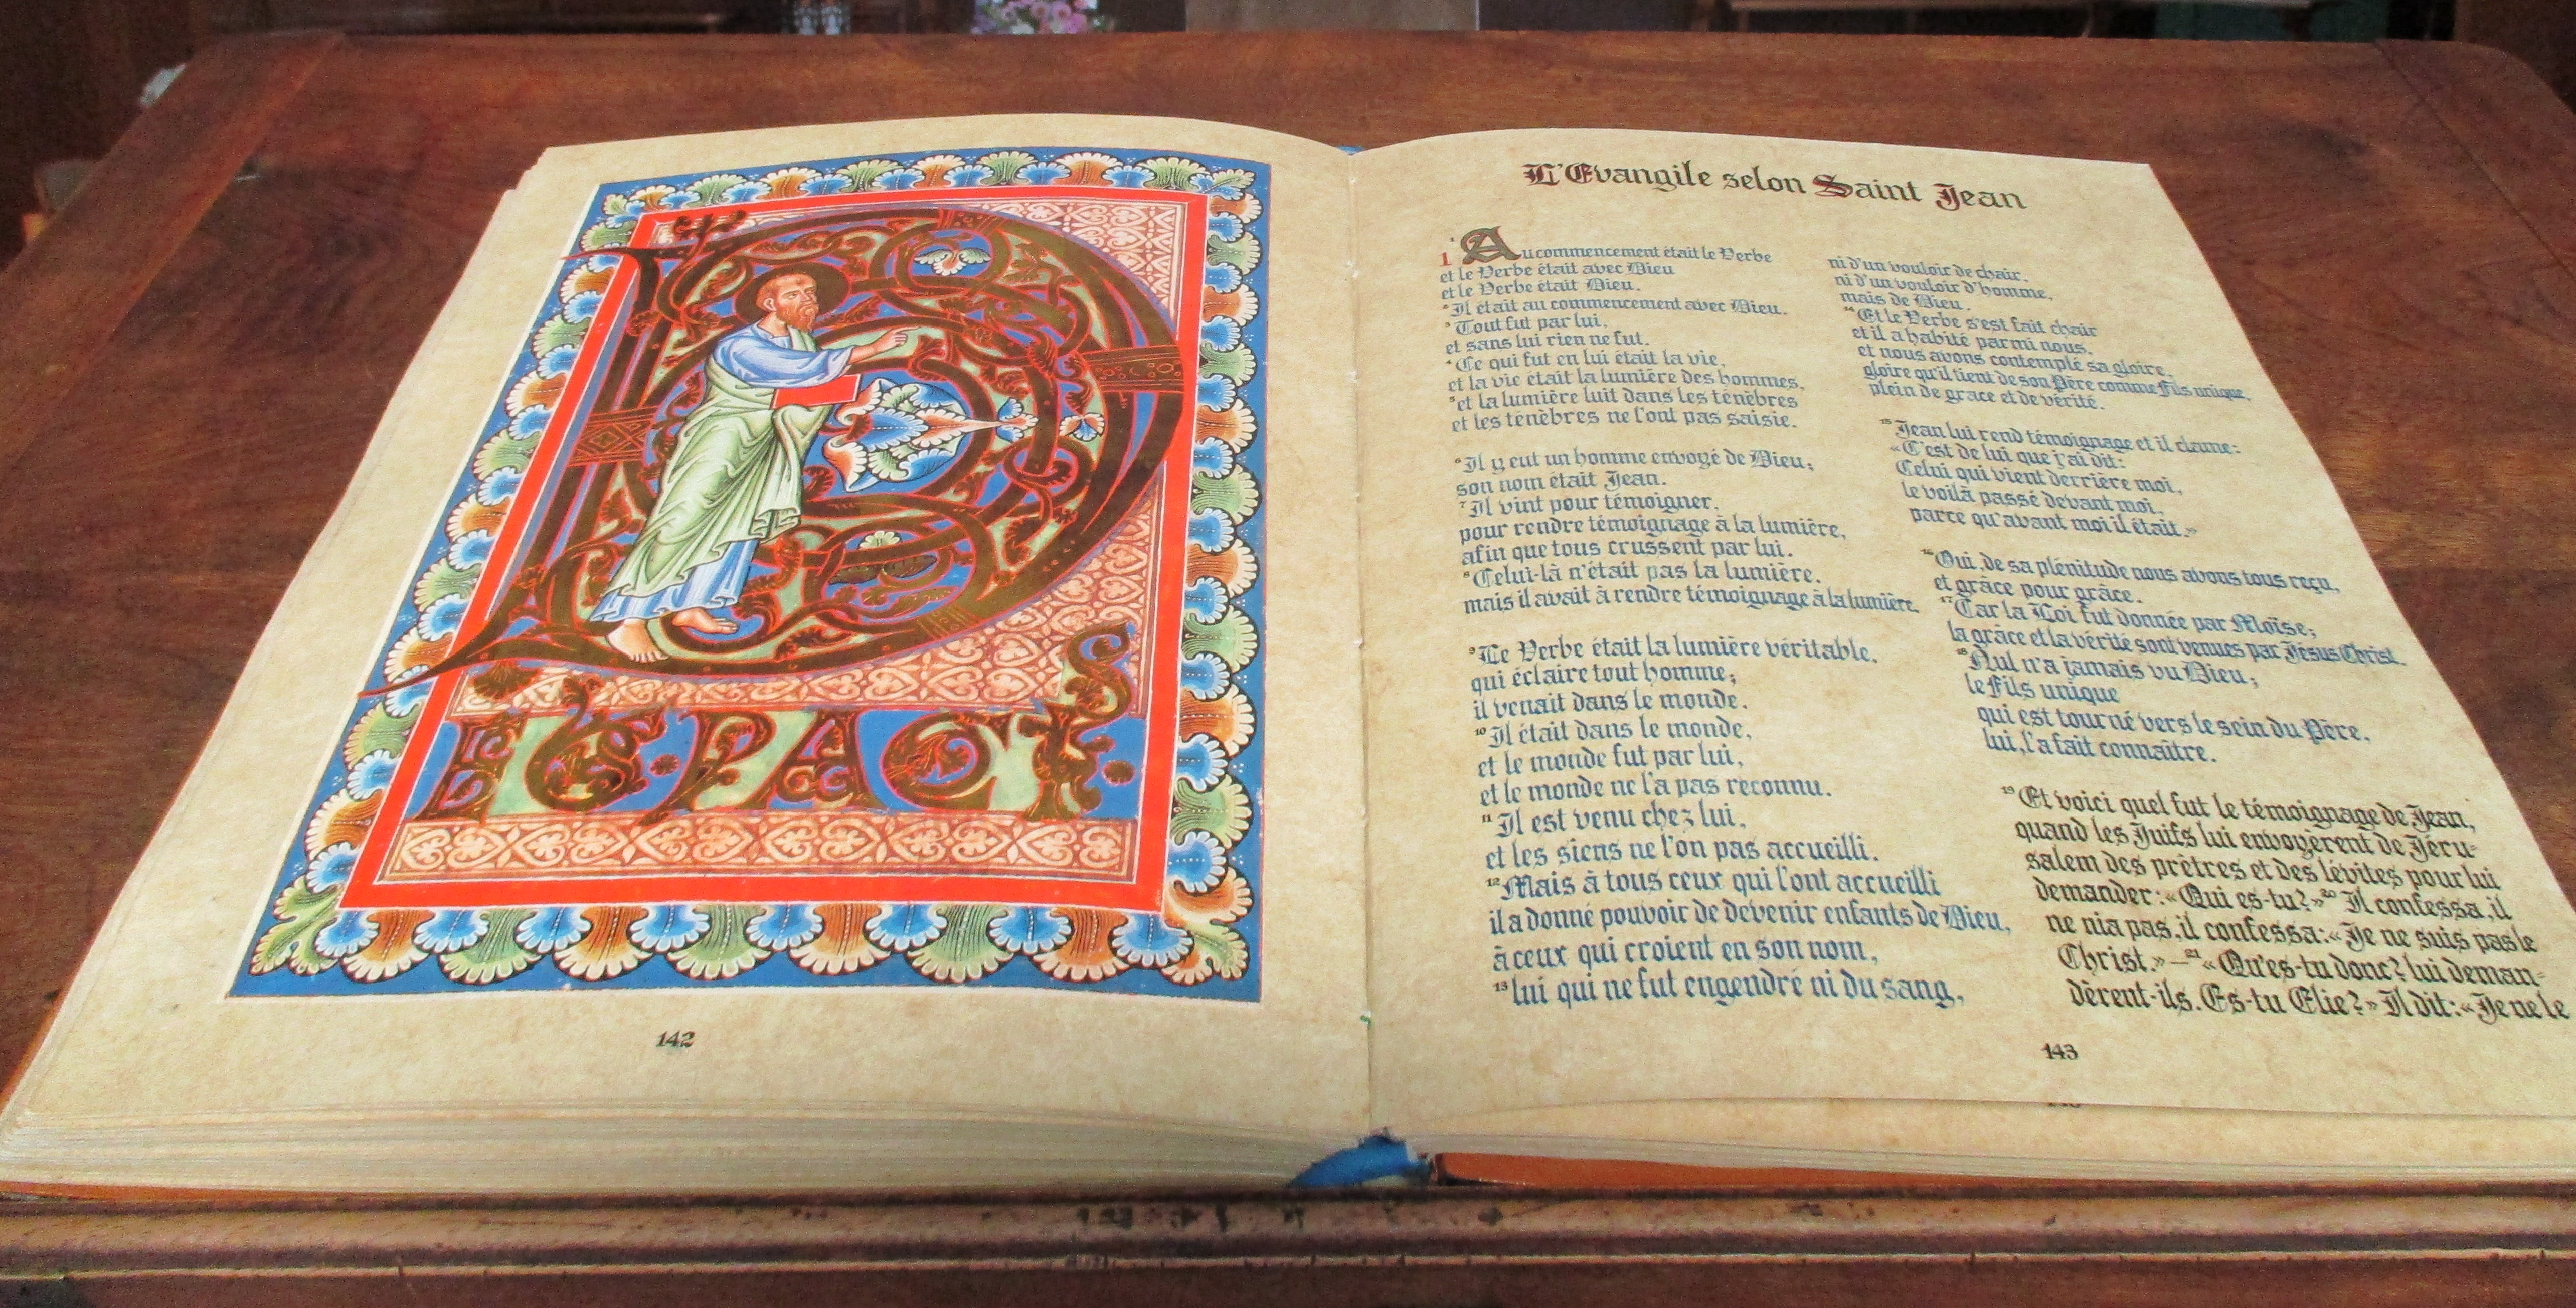 142
L'Evangile selon Saint Jean
1
¹ Au commencement était le Verbe
et le Verbe était avec Dieu
et le Verbe était Dieu.
² Il était au commencement avec Dieu.
³ Tout fut par lui,
et sans lui rien ne fut.
⁴ Ce qui fut en lui était la vie,
et la vie était la lumière des hommes,
⁵ et la lumière luit dans les ténèbres
et les ténèbres ne l'ont pas saisie.
⁶ Il y eut un homme envoyé de Dieu;
son nom était Jean.
⁷ Il vint pour témoigner,
pour rendre témoignage à la lumière,
afin que tous crussent par lui.
⁸ Celui-là n'était pas la lumière,
mais il avait à rendre témoignage à la lumière.
⁹ Le Verbe était la lumière véritable,
qui éclaire tout homme;
il venait dans le monde.
¹⁰ Il était dans le monde,
et le monde fut par lui,
et le monde ne l'a pas reconnu.
¹¹ Il est venu chez lui,
et les siens ne l'on pas accueilli.
¹² Mais à tous ceux qui l'ont accueilli
il a donné pouvoir de devenir enfants de Dieu,
à ceux qui croient en son nom,
¹³ lui qui ne fut engendré ni du sang,
ni d'un vouloir de chair,
ni d'un vouloir d'homme,
mais de Dieu.
¹⁴ Et le Verbe s'est fait chair
et il a habité parmi nous,
et nous avons contemplé sa gloire,
gloire qu'il tient de son Père comme Fils unique,
plein de grace et de vérité.
¹⁵ Jean lui rend témoignage et il clame:
«C'est de lui que j'ai dit:
Celui qui vient derrière moi,
le voilà passé devant moi,
parce qu'avant moi il était.»
¹⁶ Oui, de sa plénitude nous avons tous reçu,
et grâce pour grâce.
¹⁷ Car la Loi fut donnée par Moïse;
la grâce et la vérité sont venues par Jésus Christ.
¹⁸ Nul n'a jamais vu Dieu;
le Fils unique
qui est tourné vers le sein du Père,
lui, l'a fait connaître.
¹⁹ Et voici quel fut le témoignage de Jean,
quand les Juifs lui envoyèrent de Jéru-
salem des prêtres et des lévites pour lui
demander: «Qui es-tu?» ²⁰ Il confessa, il
ne nia pas, il confessa: «Je ne suis pas le
Christ.» — ²¹ «Qu'es-tu donc? lui deman-
dèrent-ils. Es-tu Elie?» Il dit: «Je ne le
143